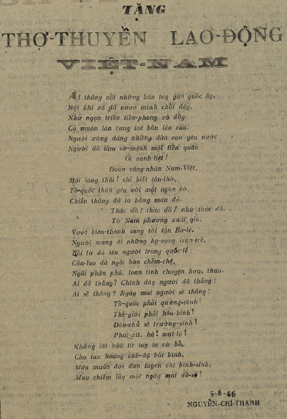 TẶNG
THỢ-THUYỀN LAO-ĐỘNG
VIỆT-NAM
Ai thắng nổi những bàn tay gân guốc ấy,
Một khi về đã vươn mình chỗi dậy,
Như ngọn triều tiền-phong xô đẩy
Cả muôn làn tung tơi bắn lên cầu.
Người xứng đáng những đứa con yêu nước
Người đã làm sứ-mệnh một tiền quân
Ôi oanh-liệt!
Đoàn công-nhân Nam-Việt,
Một lòng thôi! chỉ biết tôn-thờ,
Tổ-quốc thân yêu với một ngọn cờ,
Chiến thắng đã tô bằng máu đỏ.
Thác đổ! thác đổ! như thác đổ,
Từ Nam phương xuất gió,
Vượt biên-thành sang tới tận Ba-lê,
Người mang đi những hy-vọng tràn-trề,
Rồi từ đó tên người trong quốc-tế
Cần-lao đã ngồi bàn chễm-chệ,
Ngồi phân phô, toan tính chuyện hơn, thua.
Ai đã thắng? Chính đây người đã thắng!
Ai sẽ thắng? Ngày mai người sẽ thắng!
Tổ-quốc phải quang-vinh!
Thế-giới phải hòa-bình!
Dân-chủ sẽ trường-sinh!
Phát-xít, hà! mạt lộ!
Những lời hứa từ nay
Cho tan hoang chế-độ bất bình,
Máu muôn đời đun luyện chí hinh-sinh,
Mau chiếm lấy một ngày mai
5-6-46
NGUYỄN-CHÍ-THANH